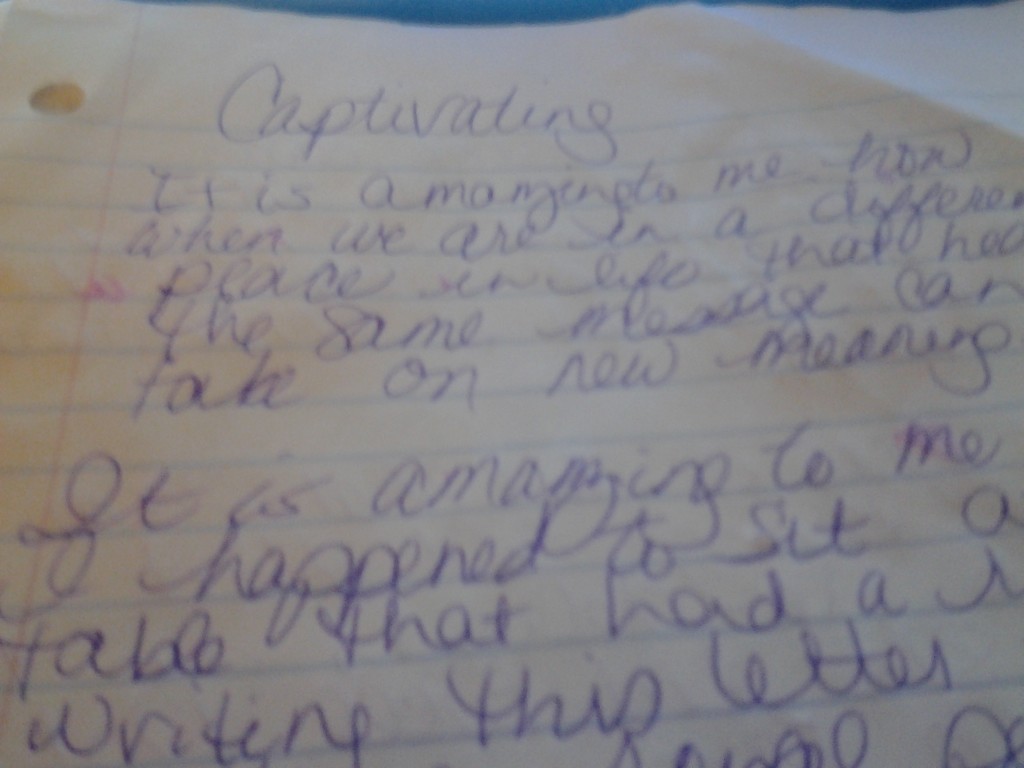 Captivating
It is amazing to me how
when we are in a differen
place in life that
the same message can
take on new meaning
It is amazing to me
I happened to sit a
table that had a
writing this letter